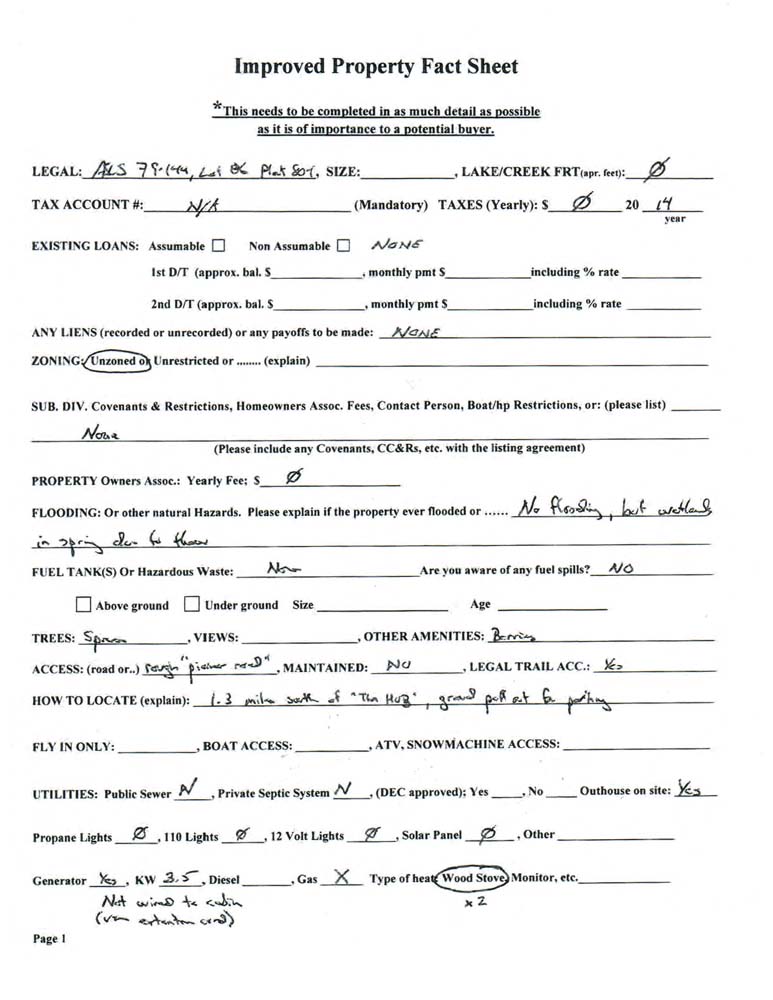 Improved Property Fact Sheet
*This needs to be completed in as much detail as possible
as it is of importance to a potential buyer.
LEGAL: ASLS 79-144, Lot 8K Plat 80-1, SIZE:____________, LAKE/CREEK FRT(apr. feet): Ø
TAX ACCOUNT #: N/A (Mandatory) TAXES (Yearly): $ Ø 20 14
year
EXISTING LOANS: Assumable ☐ Non Assumable ☐ NONE
1st D/T (approx. bal. $____________, monthly pmt $____________including % rate ____________
2nd D/T (approx. bal. $____________, monthly pmt $____________including % rate ____________
ANY LIENS (recorded or unrecorded) or any payoffs to be made: NONE
ZONING: Unzoned or Unrestricted or ........ (explain) ____________
SUB. DIV. Covenants & Restrictions, Homeowners Assoc. Fees, Contact Person, Boat/hp Restrictions, or: (please list) ________
None
(Please include any Covenants, CC&Rs, etc. with the listing agreement)
PROPERTY Owners Assoc.: Yearly Fee; $ Ø
FLOODING: Or other natural Hazards. Please explain if the property ever flooded or ...... No flooding, but wetlands
in spring due to thaw
FUEL TANK(S) Or Hazardous Waste: None Are you aware of any fuel spills? NO
☐ Above ground ☐ Under ground Size ____________ Age ____________
TREES: Spruce, VIEWS: ____________, OTHER AMENITIES: Berries
ACCESS: (road or..) rough "pioneer road", MAINTAINED: NO, LEGAL TRAIL ACC.: Yes
HOW TO LOCATE (explain): 1.3 miles south of "The HUB", gravel pull out for parking
FLY IN ONLY: ____________, BOAT ACCESS: ____________, ATV, SNOWMACHINE ACCESS: ____________
UTILITIES: Public Sewer N, Private Septic System N, (DEC approved); Yes _____, No _____ Outhouse on site: Yes
Propane Lights Ø, 110 Lights Ø, 12 Volt Lights Ø, Solar Panel Ø, Other ____________
Generator Yes, KW 3.5, Diesel _______, Gas X Type of heat: Wood Stove, Monitor, etc.____________
Not wired to cabin x 2
(via extention cord)
Page 1